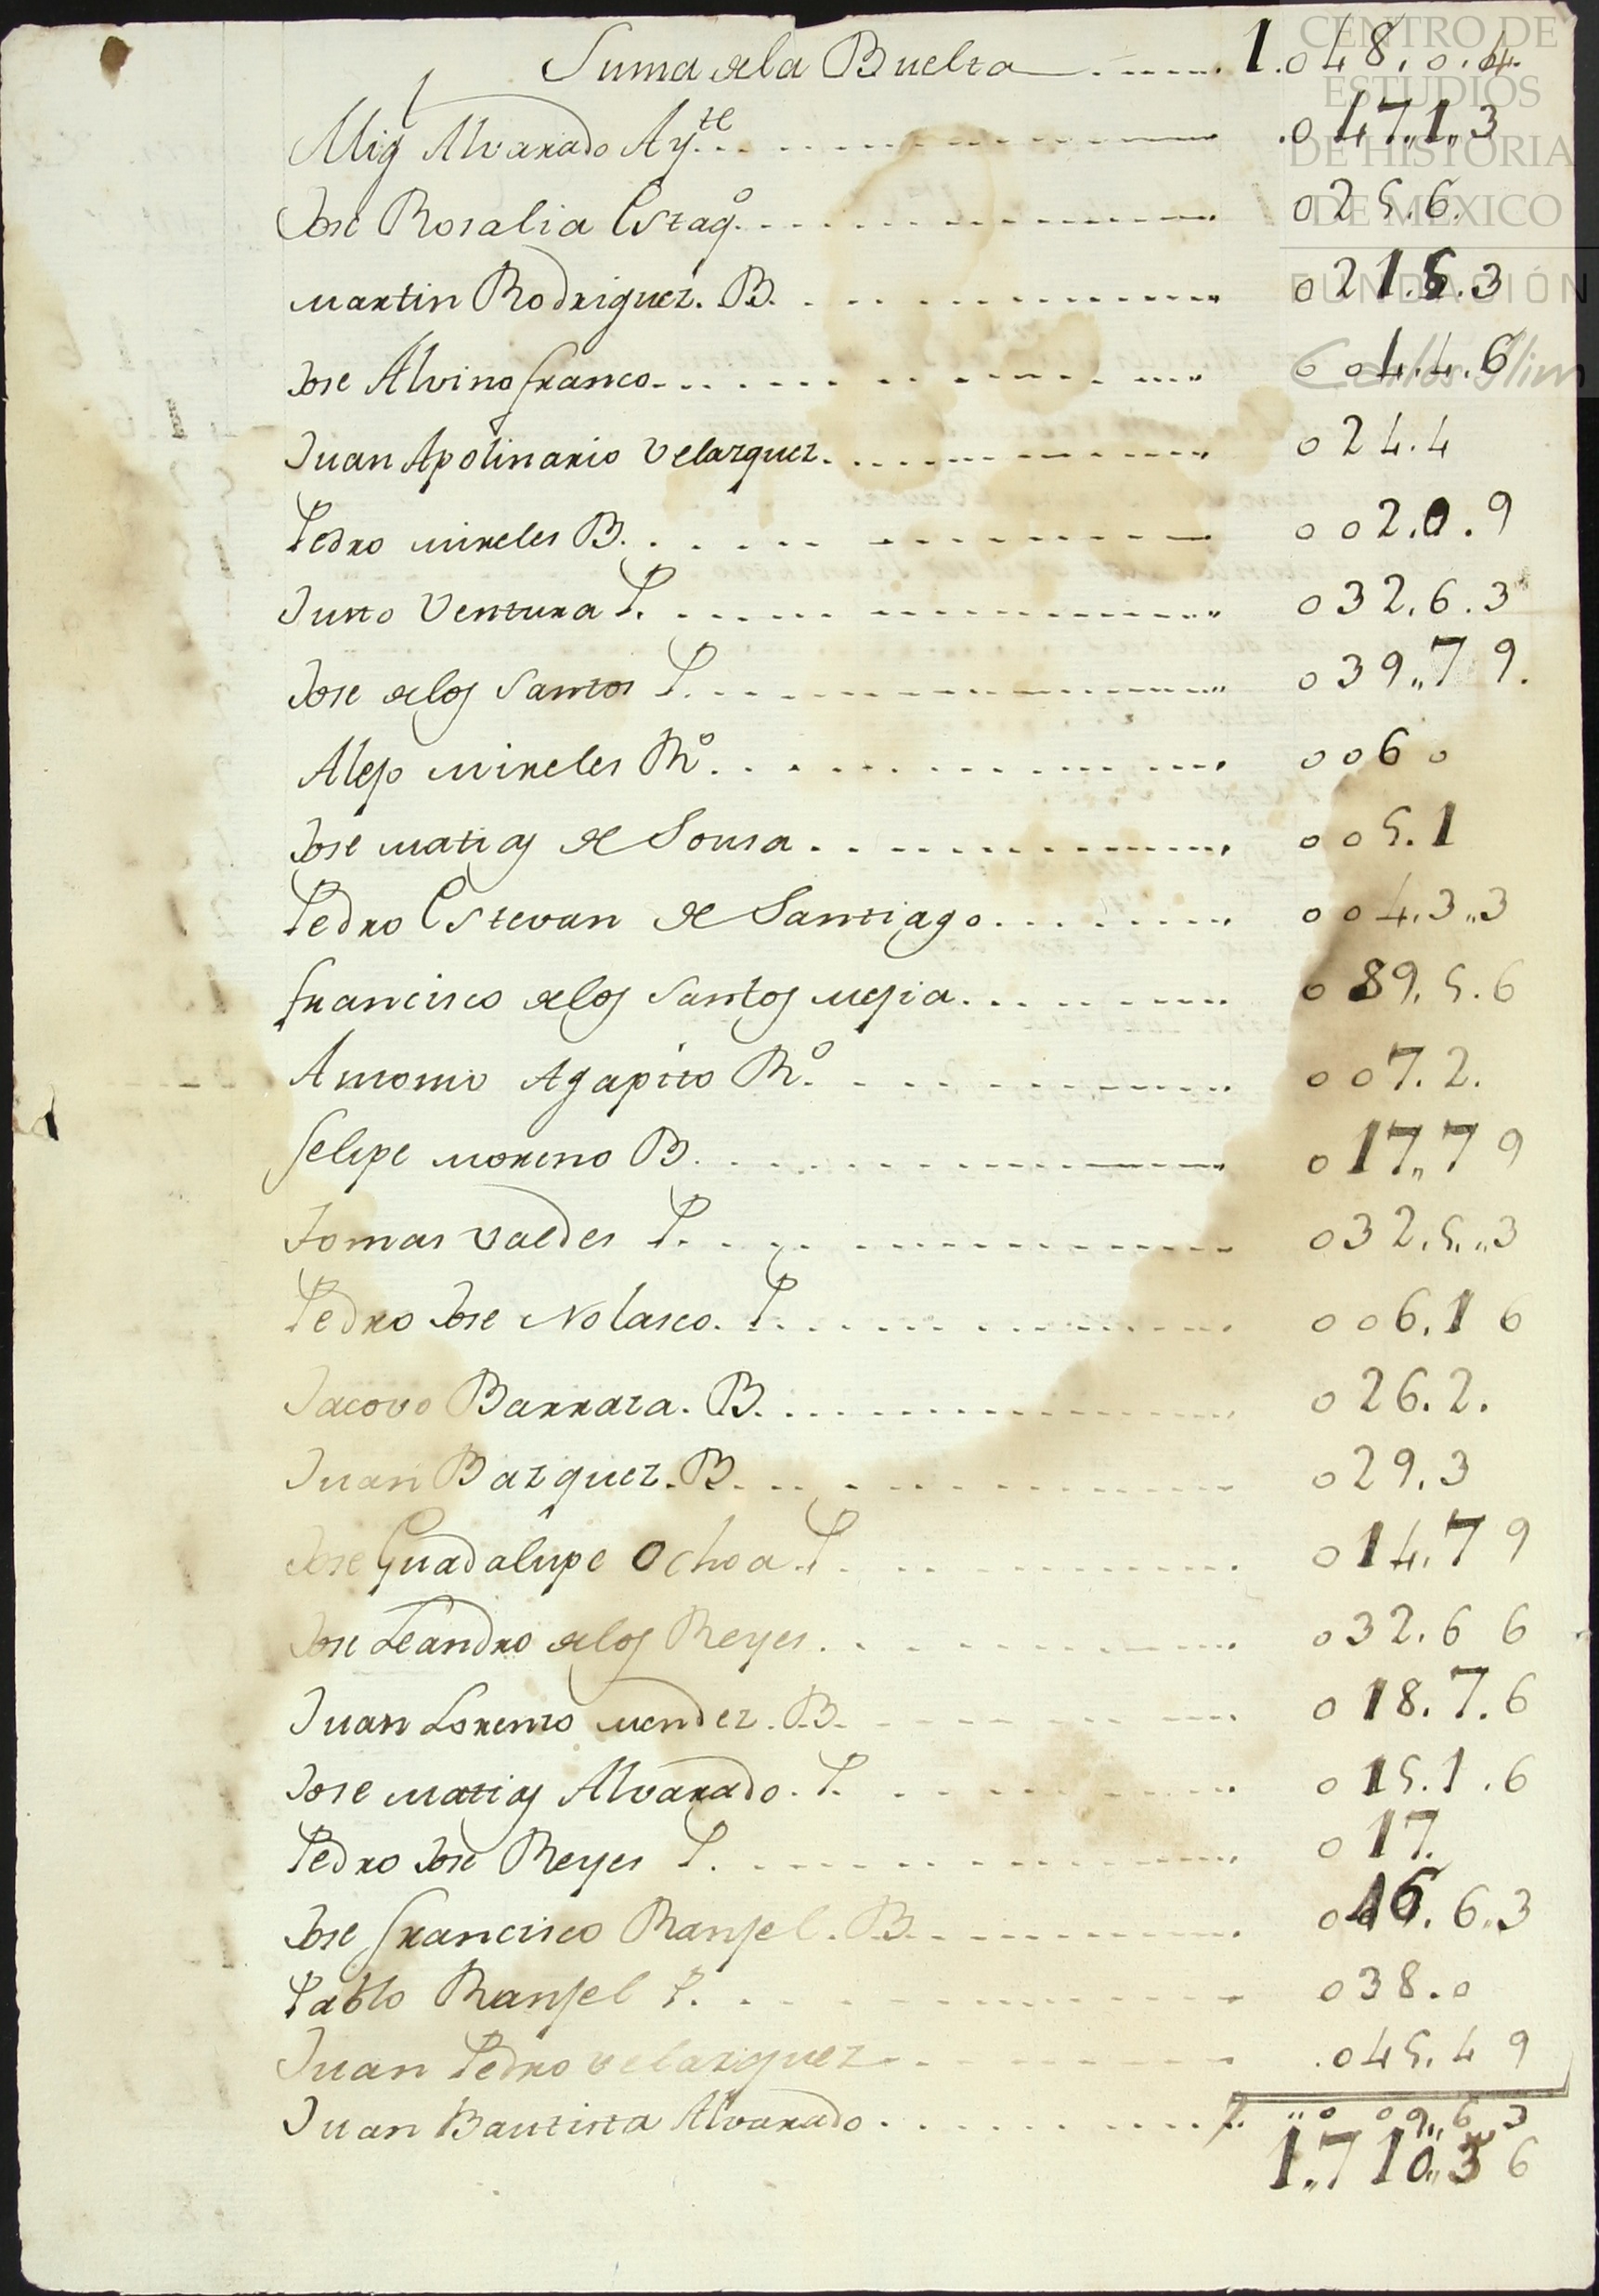 Suma dela Buelta 1.048.0.4.
CENTRO DE
ESTUDIOS
DE HISTORIA
DE MÉXICO
FUNDACIÓN
Carlos Slim
Mig Alvarado Ay.te .047,,1,,3
Jose Rosalia Estaqo. 025.6.
Martin Rodriguez. B. 021.5.3
Jose Alvino franco 004.4.6
Juan Apolinario Velazquez. 024.4
Pedro Mireles B. 002.0.9
Justo Ventura P. 032.6.3
Jose delos Santos P. 039,,79.
Alejo Mireles Ro. 0060
Jose Matias de Sousa 005.1
Pedro Estevan de Santiago 004.3,,3
francisco delos Santos Mejia 089.5.6
Antonio Agapito Ro. 007.2.
felipe Moreno B. 017,,79
Tomas Valdes P. 032.5.,,3
Pedro Jose Nolasco. P. 006.16
Jacovo Barraza. B. 026.2.
Juan Bazquez. B. 029.3
Jose Guadalupe Ochoa. P. 014.79
Jose Leandro delos Reyes. 032.66
Juan Lorenzo Mendez. B. 018.7.6
Jose Matias Alvarado. P. 015.1.6
Pedro Jose Reyes P. 017.
Jose francisco Ranjel. B. 6.,3
Pablo Ranjel P. 038.0
Juan Pedro Velazquez .045.49
Juan Bautista Alvarado ,,009,,6,,3
1.,710,,36